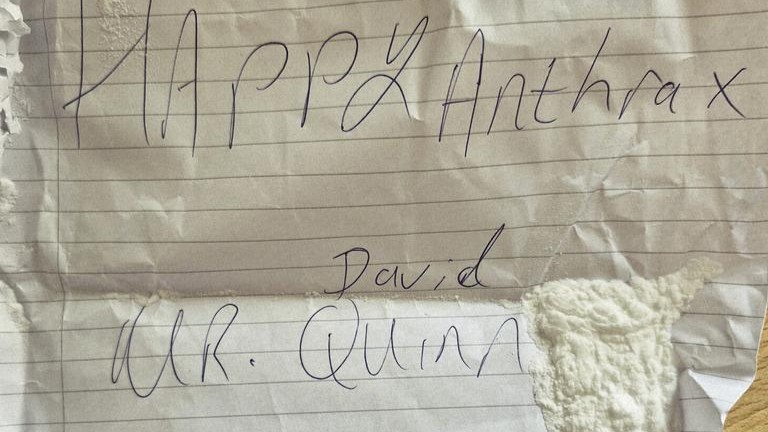 HAPPY Anthrax
David
MR. Quinn